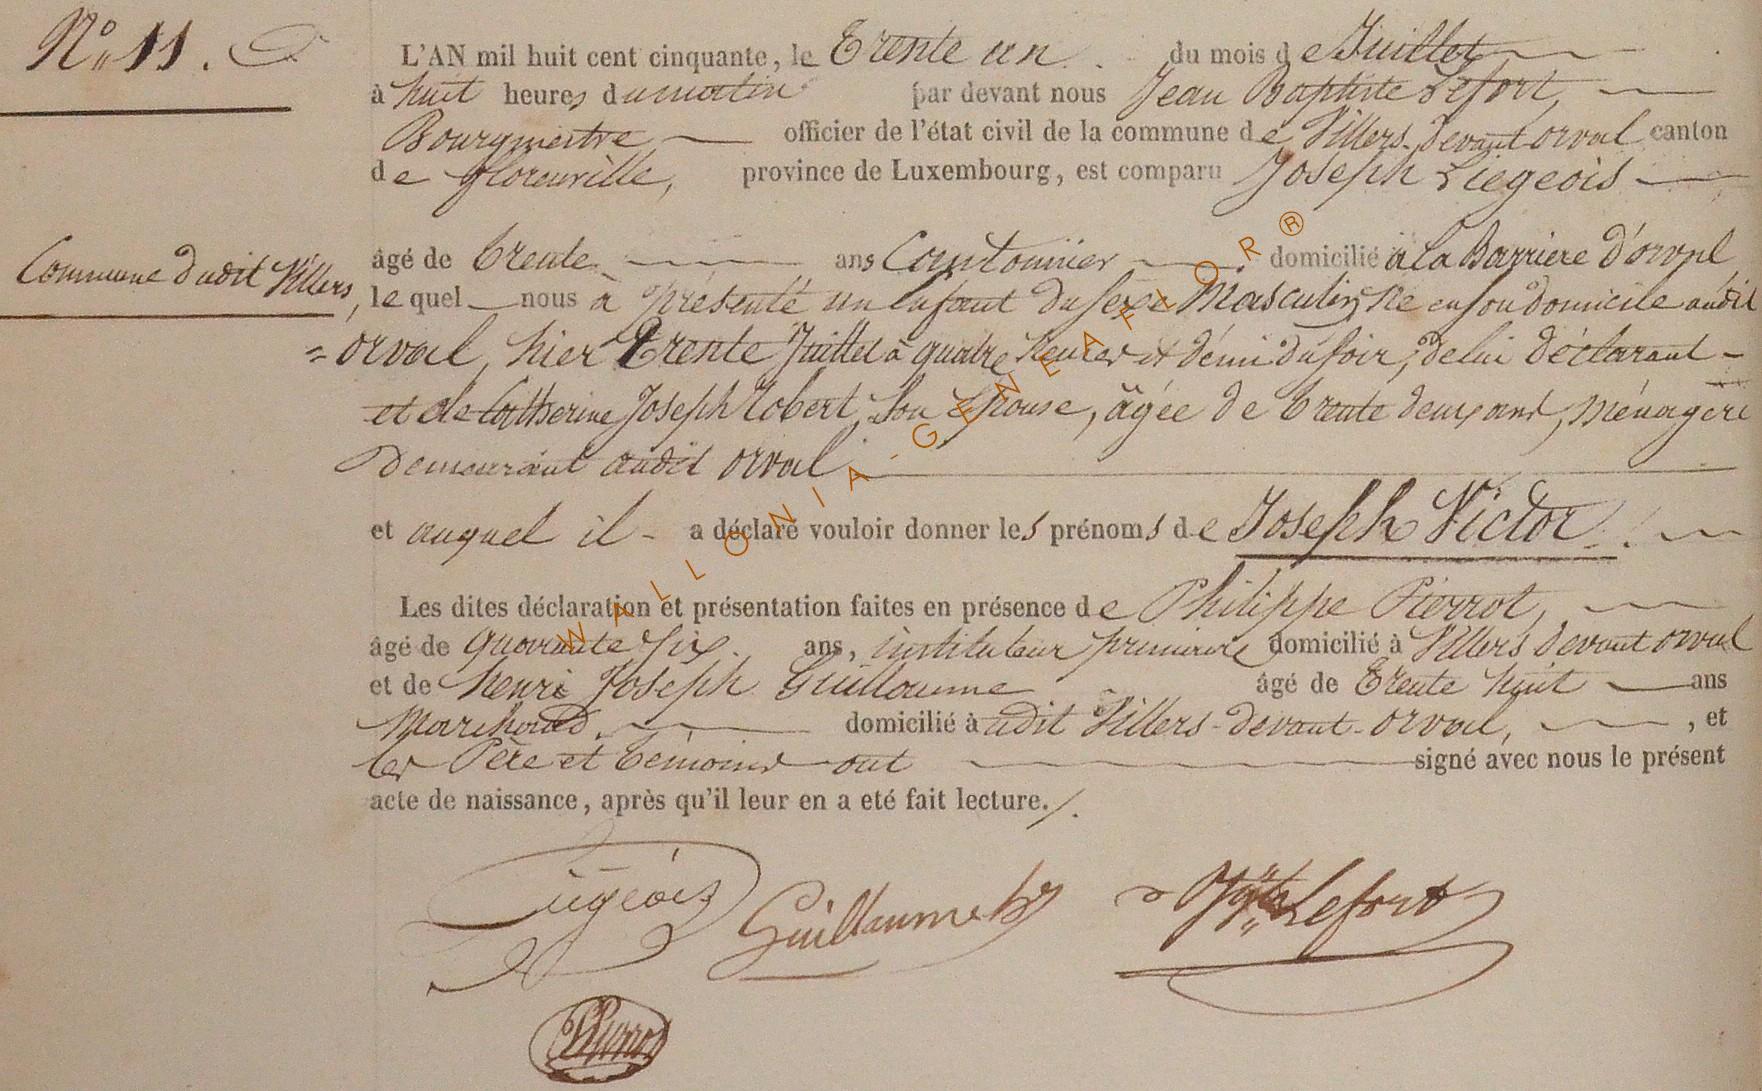 N° 11.
L'AN mil huit cent cinquante, le Trente un du mois de Juillet
à huit heures du matin par devant nous Jean Baptiste Lefort,
Bourgmestre officier de l'état civil de la commune de Villers-devant orval canton
de florenville, province de Luxembourg, est comparu Joseph Liegeois
Commune dudit Villers,
âgé de trente ans Cantonnier domicilié à la Barrière d'orval
le quel nous à présenté un Enfant du sexe Masculin, né en son domicile audit
=orval, hier Trente Juillet à quatre heures et demi du soir, de lui déclarant
et de Catherine Joseph Robert, Son Epouse, âgée de trente deux ans, Ménagère
Demeurant audit orval
et auquel il a déclaré vouloir donner les prénoms de Joseph Victor.
Les dites déclaration et présentation faites en présence de Philippe Pierrot,
âgé de quarante six ans, instituteur primaire domicilié à Villers devant orval
et de henri Joseph Guillaume âgé de Trente huit ans
Marchand, domicilié à udit Villers-devant-orval, , et
les Père et témoins ont signé avec nous le présent
acte de naissance, après qu'il leur en a eté fait lecture./.
Liégeois Guillaume Lefort
Pierrot
WALLONIA-GENEAFLOR®